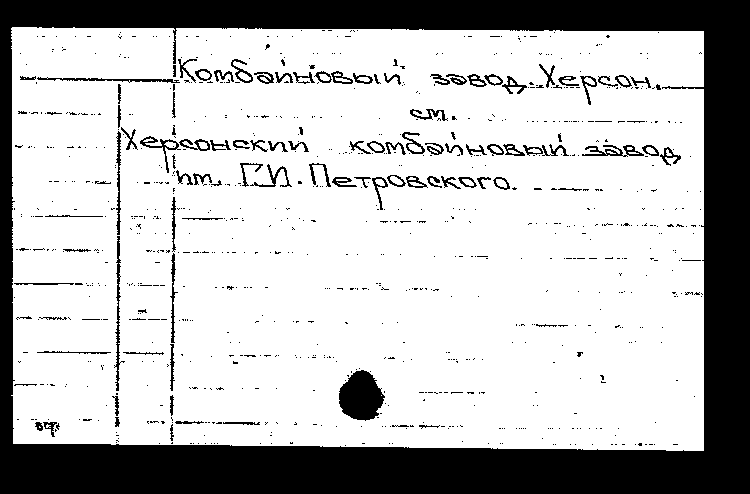 Комбайновый завод. Херсон.
см.
Херсонский комбайновый завод
им. Г.И. Петровского.